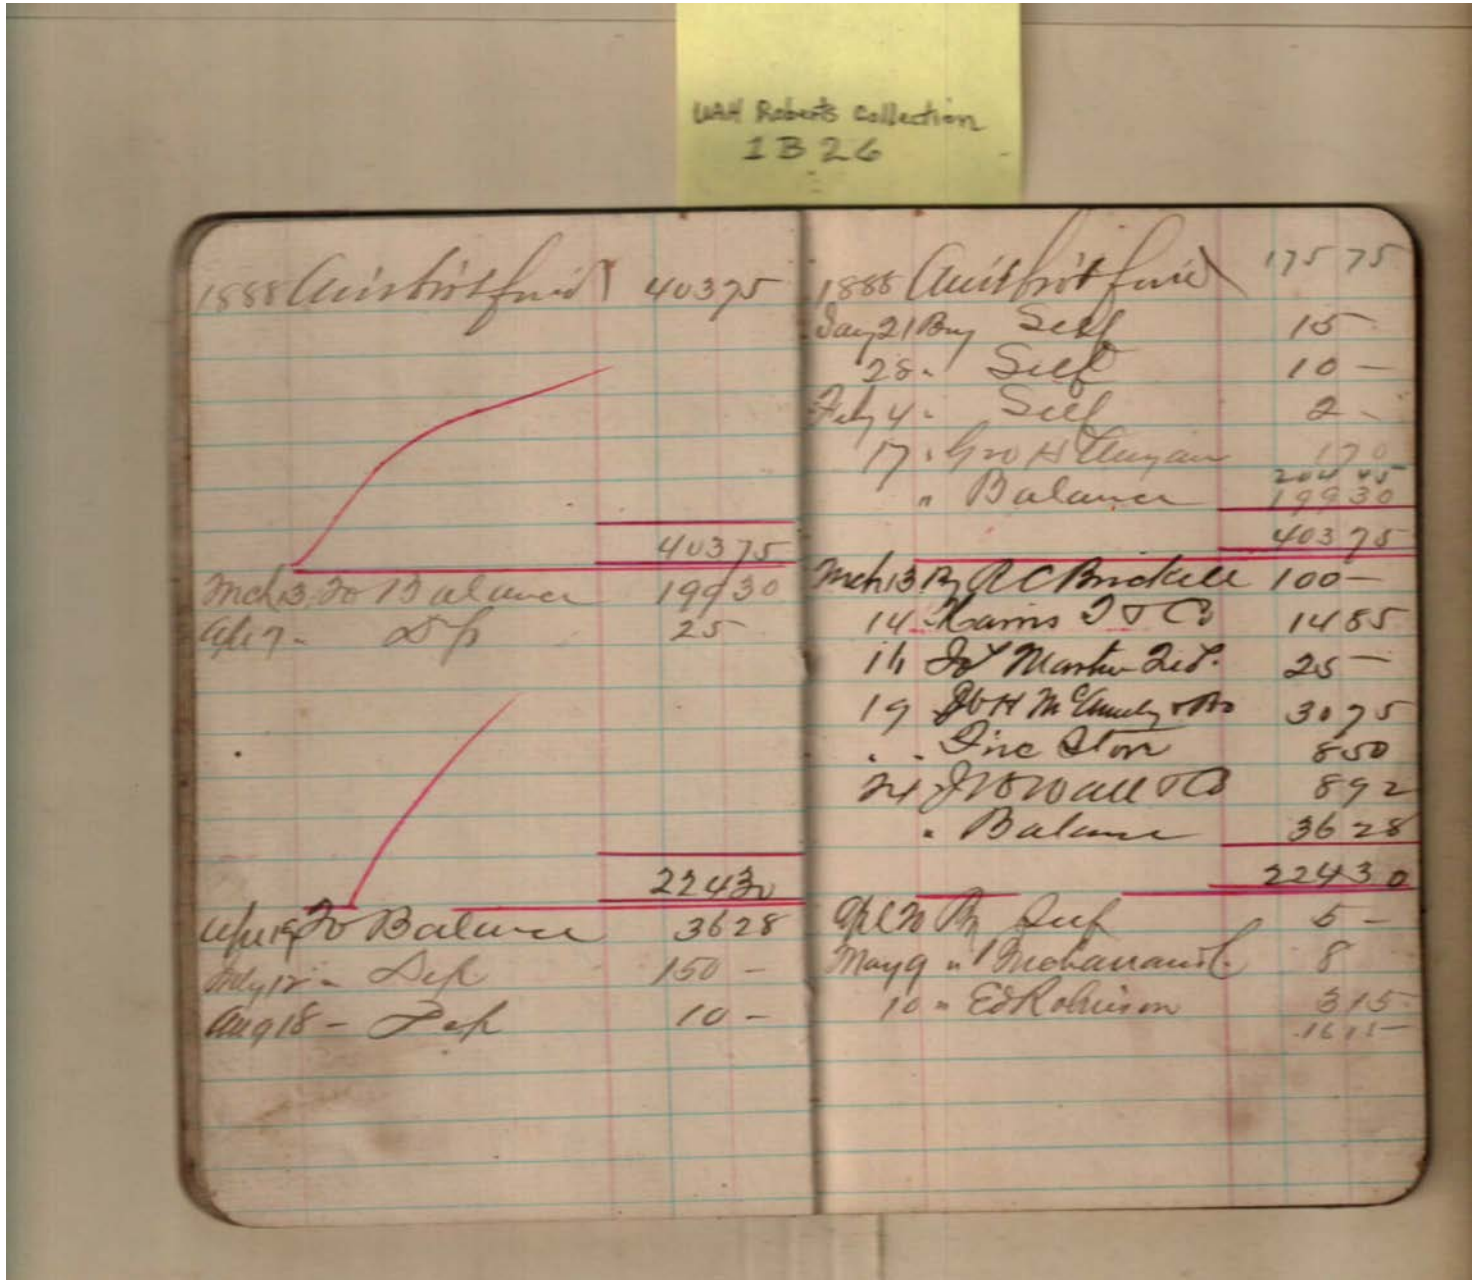 UAH Roberts Collection
1B26
1888 Am't bro't for'd 403 75
403 75
Mch 13 To Balance 199 30
Apl 7 " Dep 25
224 30
Apl 19 To Balance 36 28
July 12 " Dep 150 –
Aug 18 – Dep 10 –
1888 Am't bro't for'd 175 75
Jany 21 By Self 15
28 " Self 10 –
Feby 4 " Self 2 –
17 " Geo H 1 70
204 45
" Balance 199 30
403 75
Mch 13 By R C Brickell 100 –
14 Harris & Co 14 85
16 Martin 25 –
19 & Bro 30 75
" " Store 8 50
24 Wall & Co 8 92
" Balance 36 28
224 30
Apl 20 By Self 5 –
May 9 " 8
10 " Ed Robinson 3 15
16 15